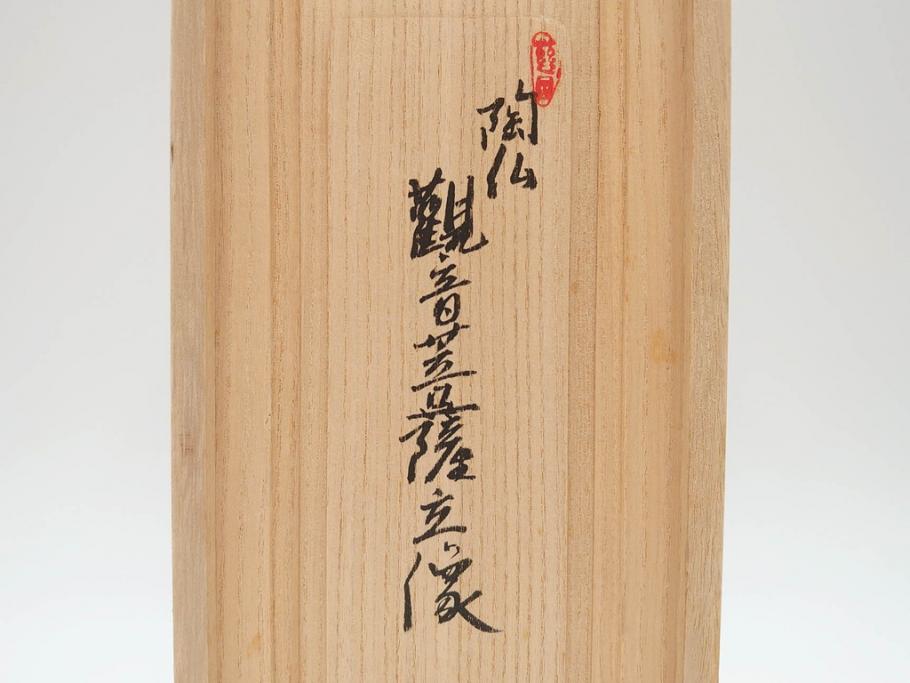 陶仏
觀音菩薩立像